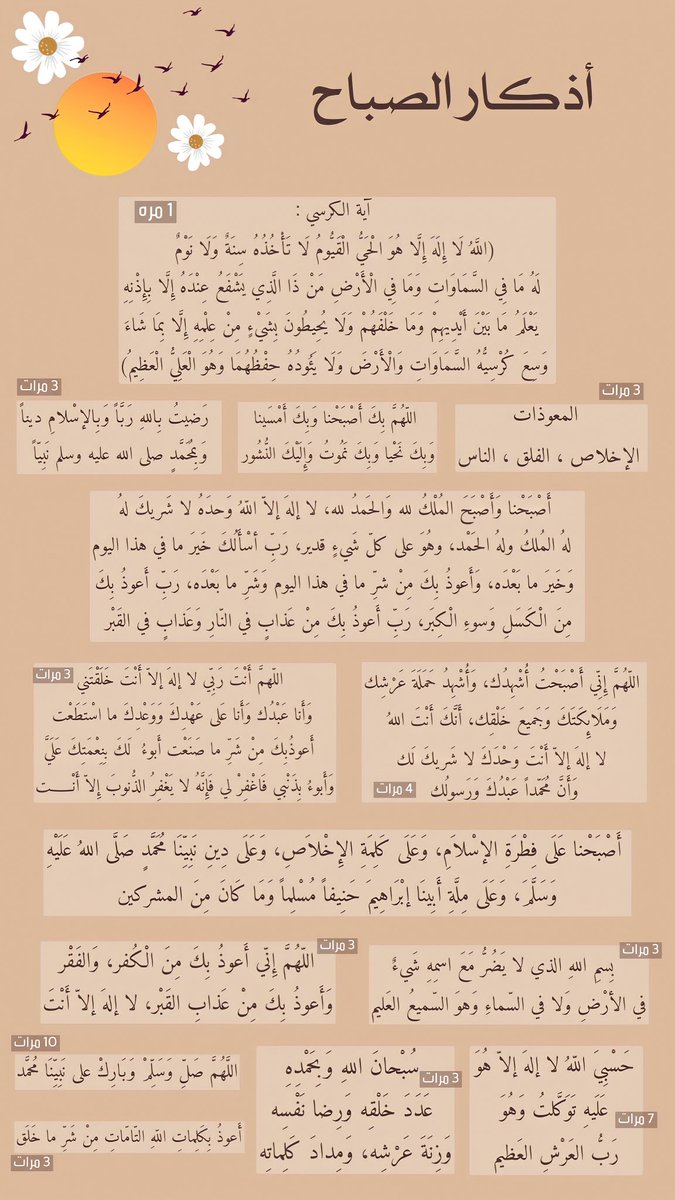 أذكار الصباح
آية الكرسي :
1 مره
(اللَّهُ لَا إِلَهَ إِلَّا هُوَ الْحَيُّ الْقَيُّومُ لَا تَأْخُذُهُ سِنَةٌ وَلَا نَوْمٌ
لَهُ مَا فِي السَّمَاوَاتِ وَمَا فِي الْأَرْضِ مَنْ ذَا الَّذِي يَشْفَعُ عِنْدَهُ إِلَّا بِإِذْنِهِ
يَعْلَمُ مَا بَيْنَ أَيْدِيهِمْ وَمَا خَلْفَهُمْ وَلَا يُحِيطُونَ بِشَيْءٍ مِنْ عِلْمِهِ إِلَّا بِمَا شَاءَ
وَسِعَ كُرْسِيُّهُ السَّمَاوَاتِ وَالْأَرْضَ وَلَا يَئُودُهُ حِفْظُهُمَا وَهُوَ الْعَلِيُّ الْعَظِيمُ)
3 مرات
المعوذات
الإخلاص ، الفلق ، الناس
اللّهُمَّ بِكَ أَصْبَحْنا وَبِكَ أَمْسَينا
وَبِكَ نَحْيا وَبِكَ نَمُوتُ وَإِلَيْكَ النُّشُور
3 مرات
رَضيتُ بِاللهِ رَبَّاً وَبِالإسْلامِ ديناً
وَبِمُحَمَّدٍ صلى الله عليه وسلم نَبِيّاً
أَصْبَحْنا وَأَصْبَحَ المُلْكُ لله وَالحَمدُ لله، لا إلهَ إلاّ اللّهُ وَحدَهُ لا شَريكَ لهُ
لهُ المُلكُ ولهُ الحَمْد، وهُوَ على كلّ شَيءٍ قدير، رَبِّ أسْأَلُكَ خَيرَ ما في هذا اليوم
وَخَيرَ ما بَعْدَه، وَأَعوذُ بِكَ مِنْ شرِّ ما في هذا اليوم وَشَرِّ ما بَعْدَه، رَبِّ أَعوذُ بِكَ
مِنَ الْكَسَلِ وَسوءِ الْكِبَر، رَبِّ أَعوذُ بِكَ مِنْ عَذابٍ في النّارِ وَعَذابٍ في القَبْر
اللّهُمَّ إِنِّي أَصْبَحْتُ أُشْهِدُك، وَأُشْهِدُ حَمَلَةَ عَرْشِك
وَمَلَائِكَتَكَ وَجَميعَ خَلْقِك، أَنَّكَ أَنْتَ اللهُ
لا إلهَ إلاّ أَنْتَ وَحْدَكَ لا شَريكَ لَك
وَأَنَّ مُحَمّداً عَبْدُكَ وَرَسولُك
4 مرات
3 مرات
اللّهمَّ أَنْتَ رَبِّي لا إلهَ إلاّ أَنْتَ خَلَقْتَني
وَأَنا عَبْدُك وَأَنا عَلى عَهْدِكَ وَوَعْدِكَ ما اسْتَطَعْت
أعوذُبِكَ مِنْ شَرِّ ما صَنَعْت أَبوءُ لَكَ بِنِعْمَتِكَ عَلَيَّ
وَأَبوءُ بِذَنْبي فَاغْفِرْ لي فَإِنَّهُ لا يَغْفِرُ الذُّنوبَ إِلاّ أَنْـــت
أَصْبَحْنا عَلَى فِطْرَةِ الإسْلاَمِ، وَعَلَى كَلِمَةِ الإِخْلاَصِ، وَعَلَى دِينِ نَبِيِّنَا مُحَمَّدٍ صَلَّى اللهُ عَلَيْهِ
وَسَلَّمَ، وَعَلَى مِلَّةِ أَبِينَا إبْرَاهِيمَ حَنِيفاً مُسْلِماً وَمَا كَانَ مِنَ المشركين
3 مرات
بِسمِ اللهِ الذي لا يَضُرُّ مَعَ اسمِهِ شَيءٌ
في الأرْضِ وَلا في السّماءِ وَهوَ السّميعُ العَليم
3 مرات
اللّهُمَّ إِنّي أَعوذُ بِكَ مِنَ الْكُفر، وَالفَقْر
وَأَعوذُ بِكَ مِنْ عَذابِ القَبْر، لا إلهَ إلاّ أَنْتَ
حَسْبِيَ اللّهُ لا إلهَ إلاّ هُوَ
عَلَيهِ تَوَكَّلتُ وَهُوَ
رَبُّ العَرْشِ العَظيم
7 مرات
سُبْحانَ اللهِ وَبِحَمْدِهِ
3 مرات
عَدَدَ خَلْقِه وَرِضا نَفْسِه
وَزِنَةَ عَرْشِه، وَمِدادَ كَلِماتِه
10 مرات
اللَّهُمَّ صَلِّ وَسَلِّمْ وَبَارِكْ على نَبِيِّنَا مُحمَّد
أَعوذُ بِكَلِماتِ اللّهِ التّامّاتِ مِنْ شَرِّ ما خَلَق
3 مرات